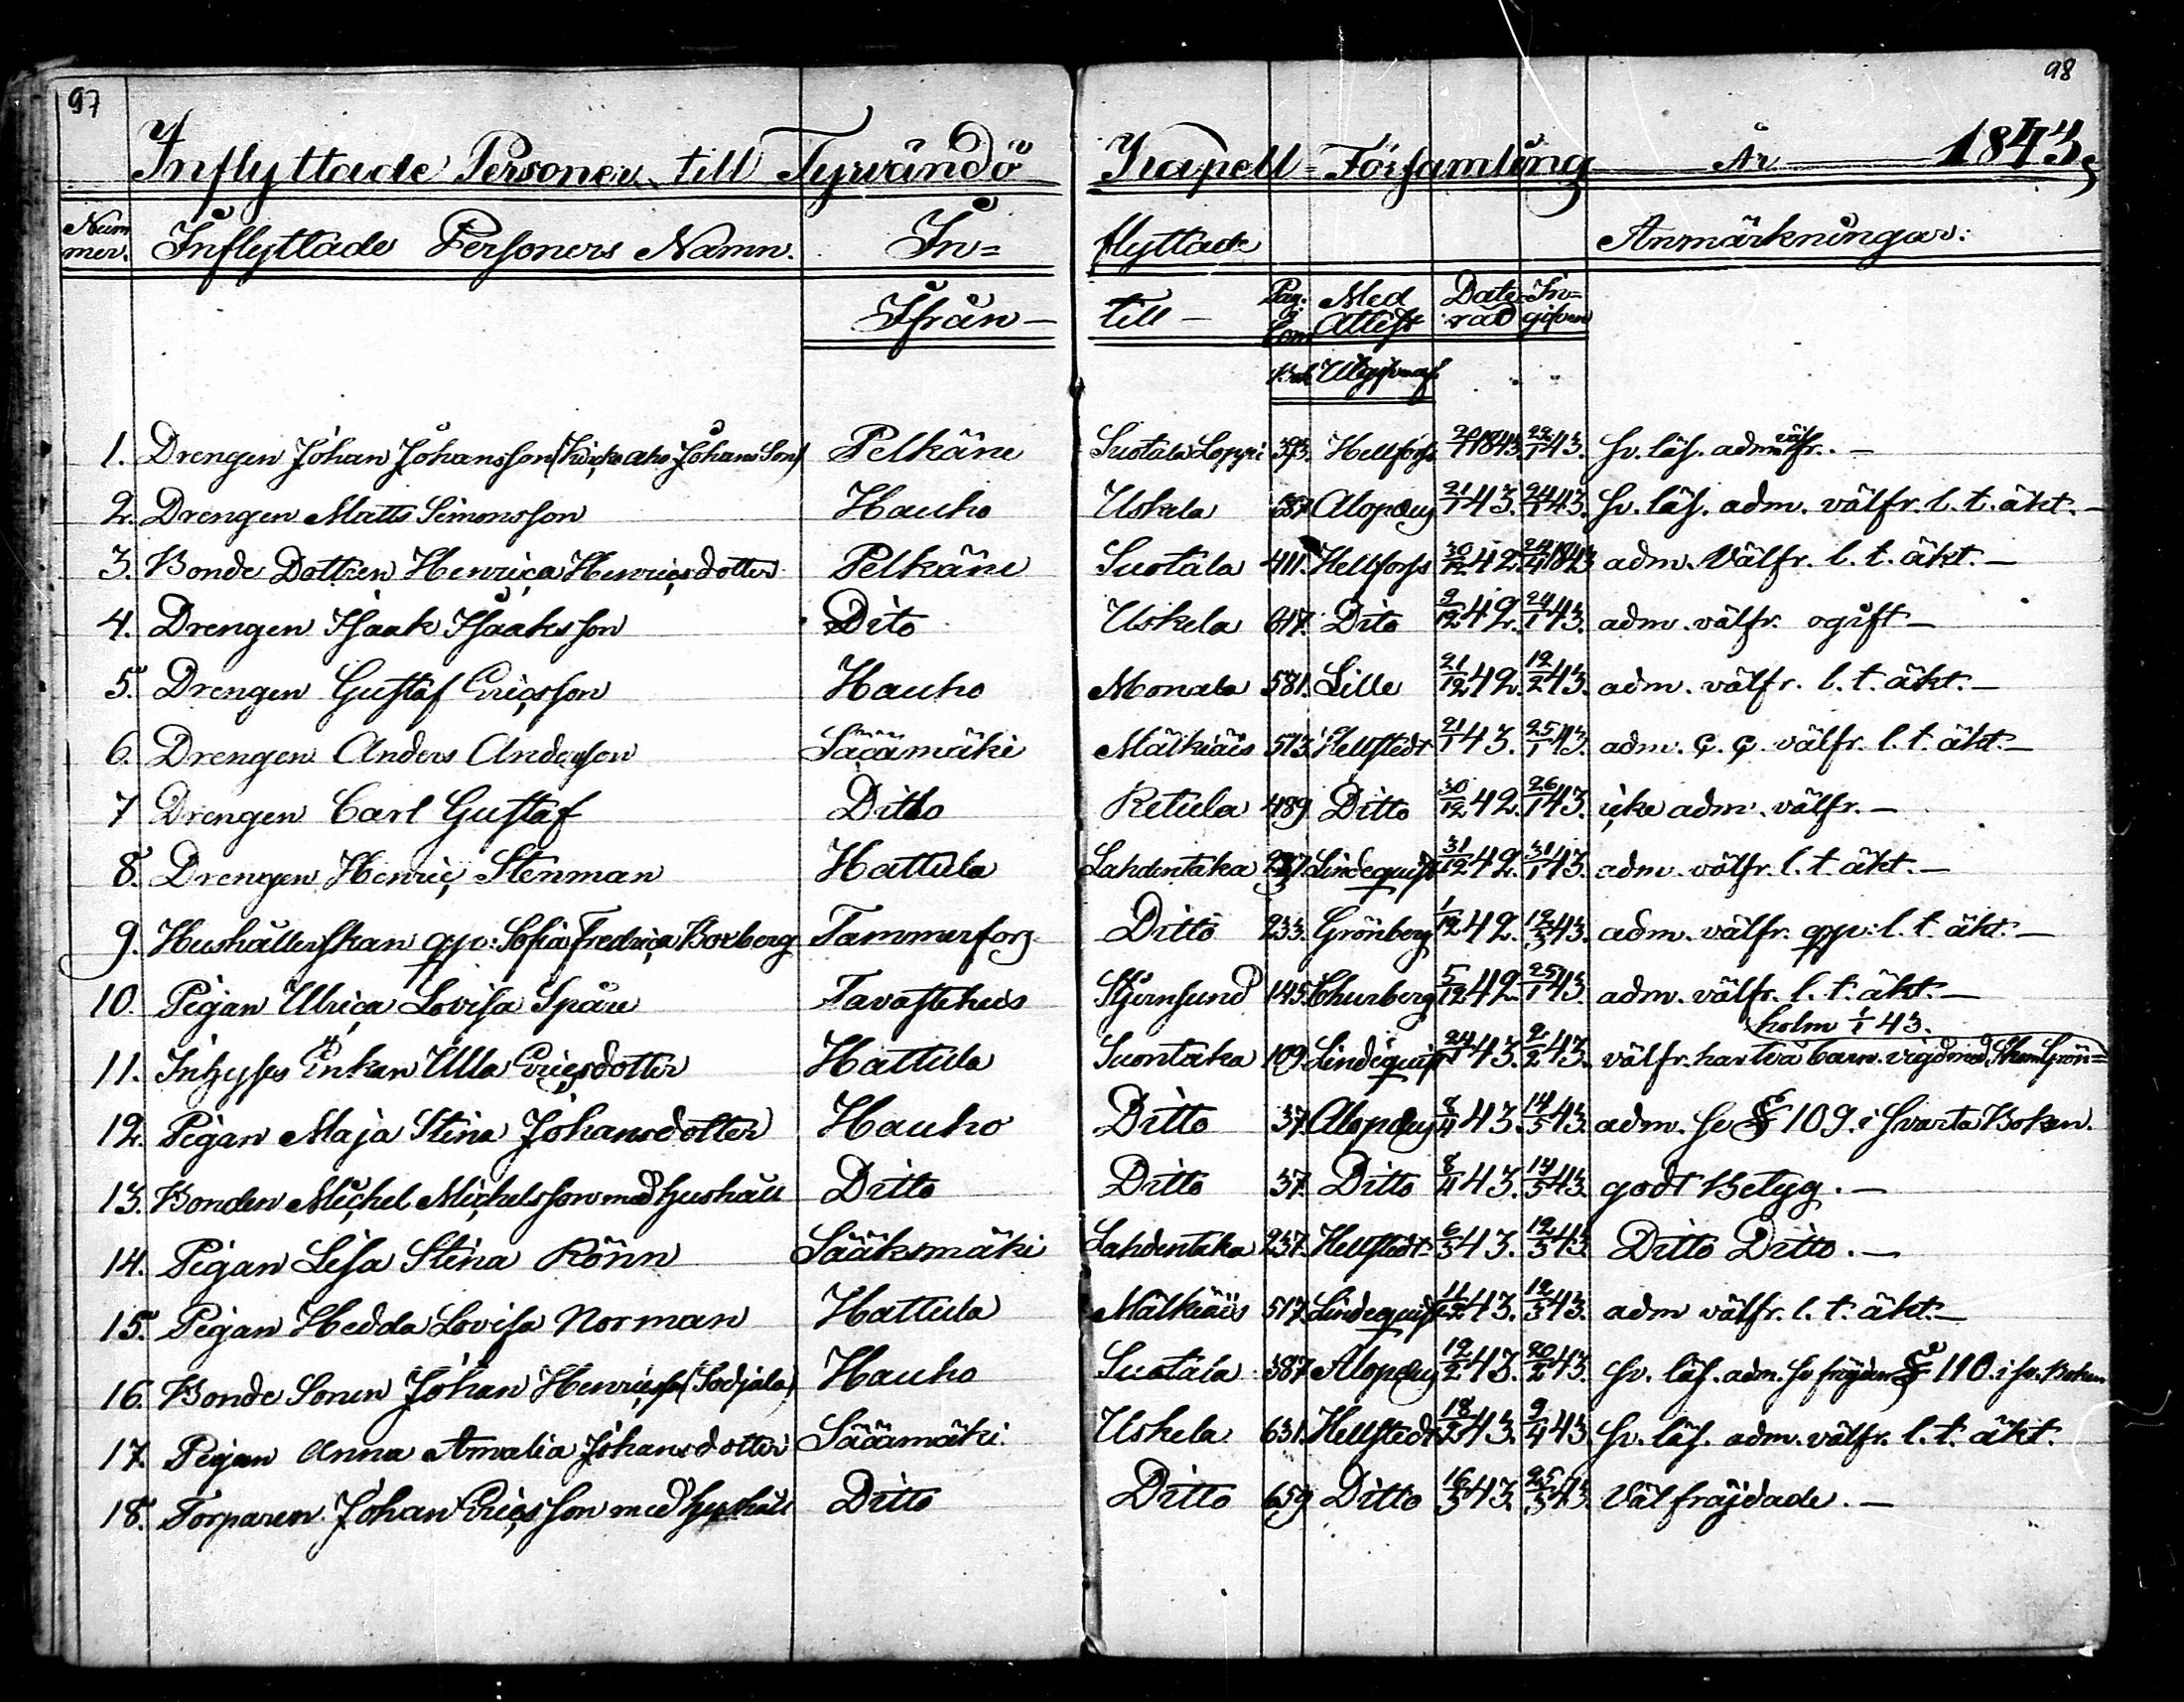 97
98
Inflyttade Personer till Tyrvändö Kapell-Församling År 1843.
Nummer. Inflyttade Personers Namn. In= flyttade Anmärkningar:
Ifrån — till — Pag. i Com Med Attest Date rad In= gifven
Bok Utgifven af
1. Drengen Johan Johansson Johans Son) Pelkäne Suotala Loppi 393. Hellfors 1843. 43. sv. läs. adm. välfr. —
2. Drengen Matts Simonsson Hauho Uskela 587 Alopæus 21/1 43. 24/1 43. sv. läs. adm. välfr. l. t. äkt. —
3. Bonde Dottren Henrica Henricsdotter Pelkäne Suotala 411. Hellforss 30/12 42. 24/1 1843 adm. Välfr. l. t. äkt. —
4. Drengen Isaak Isaaksson Dito Uskela 617. Dito 9/12 42. 24/1 43. adm. välfr. ogift —
5. Drengen Gustaf Ericsson Hauho Monala 581. Lille 21/12 42. 12/2 43. adm. välfr. l. t. äkt. —
6. Drengen Anders Andersson Sääämäki Mälkiäis 513. Hellstedt 21/1 43. 25/1 43. adm. c. c. välfr. l. t. äkt. —
7 Drengen Carl Gustaf Ditto Retula 489 Ditto 30/12 42. 26/1 43. icke adm. välfr. —
8. Drengen Henric Stenman Hattula Lahdentaka 237. Lindequist 31/12 42. 31/1 43. adm. välfr. l. t. äkt. —
9. Hushållerskan Sofia Fredrica Boxberg Tammerfors Ditto 233. Grönberg 1/12 42. 12/3 43. adm. välfr. l. t. äkt. —
10. Pigan Ulrica Lovisa Spåre Tavastehus Stjernsund 145. Churberg 5/12 42. 25/1 43. adm. välfr. l. t. äkt. —
holm 1/1 43.
11. Inhyses Enkan Ulla Ericsdotter Hattula Suontaka 109. Lindequist 24/1 43. 2/2 43. välfr. har två barn. vigd med Grön=
12. Pigan Maja Stina Johansdotter Hauho Ditto 37. Alopæus 8/4 43. 14/5 43. adm. se § 109. i svarta Boken.
13. Bonden Michel Michelsson med hushåll Ditto Ditto 37. Ditto 8/4 43. 14/5 43. godt Betyg. —
14. Pigan Lisa Stina Rönn Sääksmäki Lahdentaka 237. Hellstedt 6/3 43. 12/3 43. Ditto Ditto. —
15. Pigan Hedda Lovisa Norman Hattula Mälkiäis 517. Lindequist 43. 12/3 43. adm välfr. l. t. äkt. —
16. Bonde Sonen Johan Henricss (Sodjala) Hauho Suotala 387 Alopæus 12/2 43. 20/2 43. sv. läs. adm. se fräjden § 110. i sv. Boken
17. Pigan Anna Amalia Johansdotter Sääämäki. Uskela 631. Hellstedt 18/2 43. 9/4 43. sv. läs. adm. välfr. l. t. äkt.
18. Torparen Johan Ericsson med hushåll Ditto Ditto 659 Ditto 16/3 43. 25/3 43. Välfräjdade. —